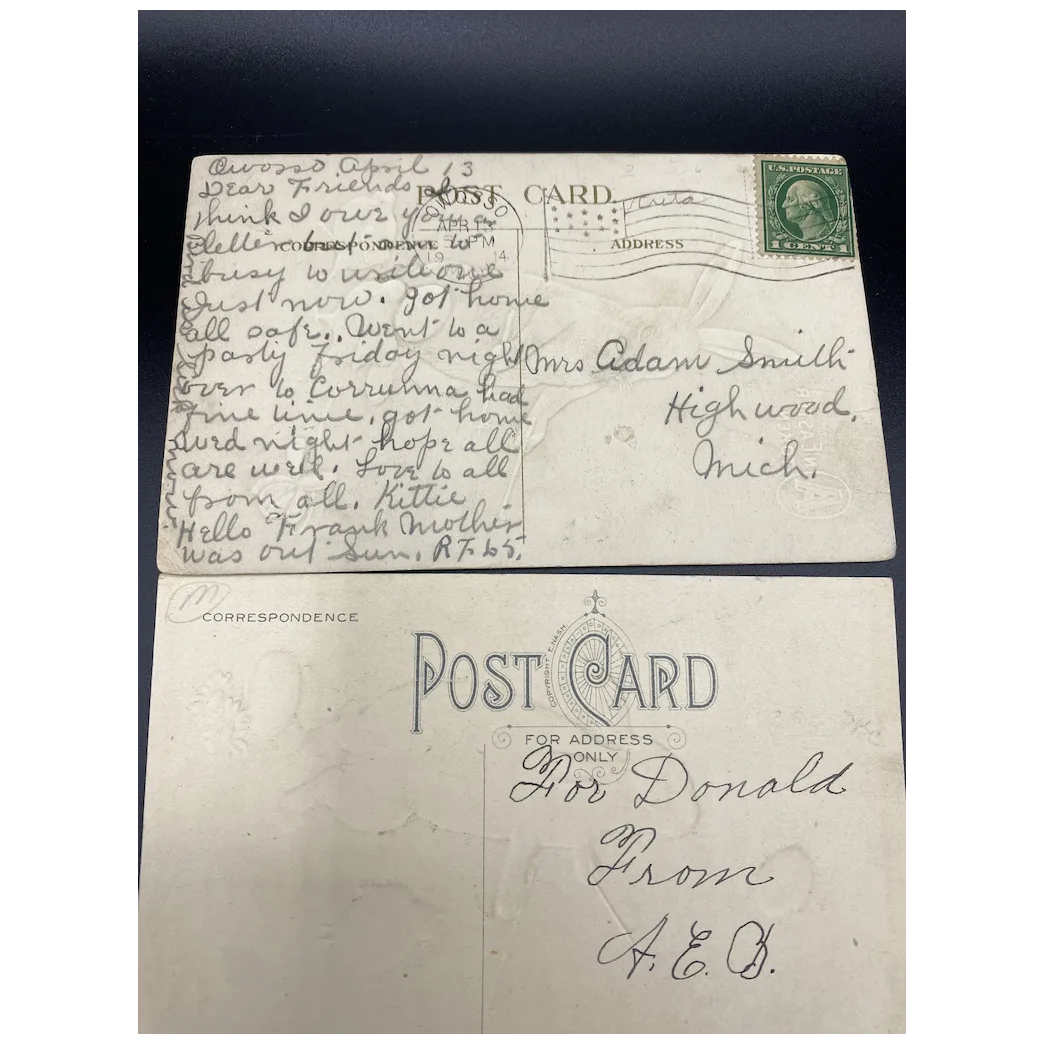 Owosso April 13
Dear Friends I
think I owe you a
letter but am to
busy to write one
Just now. got home
all safe.. Went to a
party Friday night
over to Corrunna had
fine time. got home
wed night hope all
are well. Love to all
from all. Kittie
Hello Frank Mother
was out Sun.
POST CARD.
CORRESPONDENCE
ADDRESS
OWOSSO
APR 13
5 PM
19 14
U.S. POSTAGE
1 CENT 1
Mrs Adam Smith
Highwood,
Mich.
M
CORRESPONDENCE
POST CARD
COPYRIGHT E. NASH
FOR ADDRESS
ONLY
For Donald
From
A. E. B.